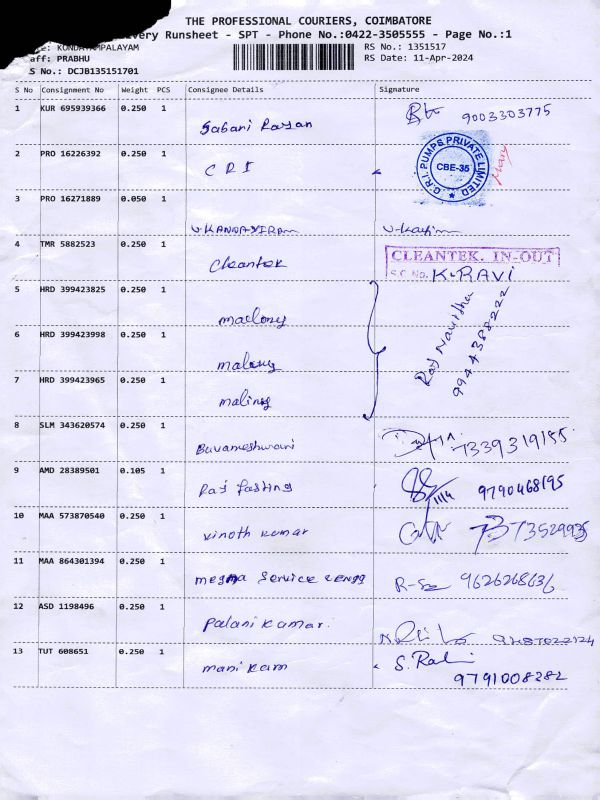 THE PROFESSIONAL COURIERS, COIMBATORE
very Runsheet - SPT - Phone No.:0422-3505555 - Page No.:1
KONDAYAMPALAYAM
RS No.: 1351517
aff: PRABHU
RS Date: 11-Apr-2024
S No.: DCJB135151701
S No Consignment No Weight PCS Consignee Details Signature
1 KUR 695939366 0.250 1 Sabani Rayan 9003303775
2 PRO 16226392 0.250 1 C R I
C.R.I. PUMPS PRIVATE LIMITED
CBE-35
3 PRO 16271889 0.050 1
4 TMR 5882523 0.250 1 Cleantek
CLEANTEK. IN-OUT
S.C. No. K.RAVI
5 HRD 399423825 0.250 1
6 HRD 399423998 0.250 1
7 HRD 399423965 0.250 1
9944388222
8 SLM 343620574 0.250 1 Buvameshwari 7339319155
9 AMD 28389501 0.105 1 Raj 9790468195
11/4
10 MAA 573870540 0.250 1 Vinoth kumar 7373529935
11 MAA 864301394 0.250 1 Service 9626268636
12 ASD 1198496 0.250 1 Palani kumar.
13 TUT 608651 0.250 1 manikam
9791008282